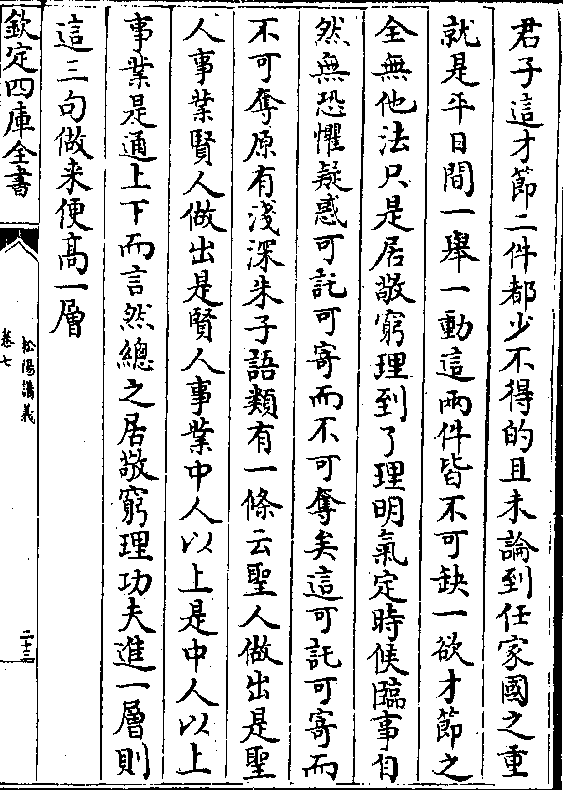 君子這才節二件都少不得的且未論到任家國之重
就是平日間一舉一動這兩件皆不可缺一欲才節之
全無他法只是居敬窮理到了理明氣定時候臨事自
然無恐懼疑惑可託可寄而不可奪矣這可託可寄而
不可奪原有淺深朱子語類有一條云聖人做出是聖
人事業賢人做出是賢人事業中人以上是中人以上
事業是通上下而言然總之居敬窮理功夫進一層則
這三句做来便髙一層
欽定四庫全書
松陽講義
卷七
二十三